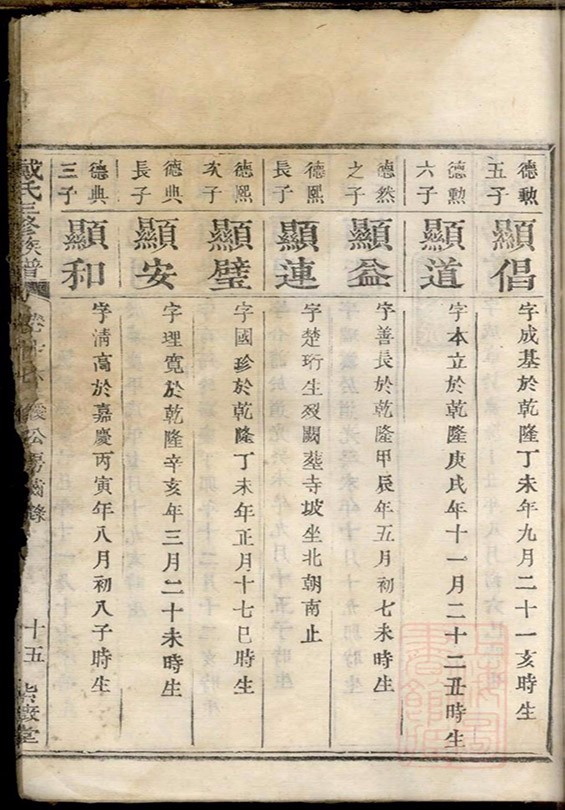 德勳五子
顯倡
字成基於乾隆丁未年九月二十一亥時生
德勳六子
顯道
字本立於乾隆庚戌年十一月二十二丑時生
德然之子
顯益
字善長於乾隆甲辰年五月初七未時生
德熙長子
顯連
字楚珩生歿闕塟寺坡坐北朝南止
德熙次子
顯璧
字國珍於乾隆丁未年正月十七巳時生
德典長子
顯安
字理寬於乾隆辛亥年三月二十未時生
德典三子
顯和
字清高於嘉慶丙寅年八月初八子時生
戴氏三修族譜
公房齒錄
十五